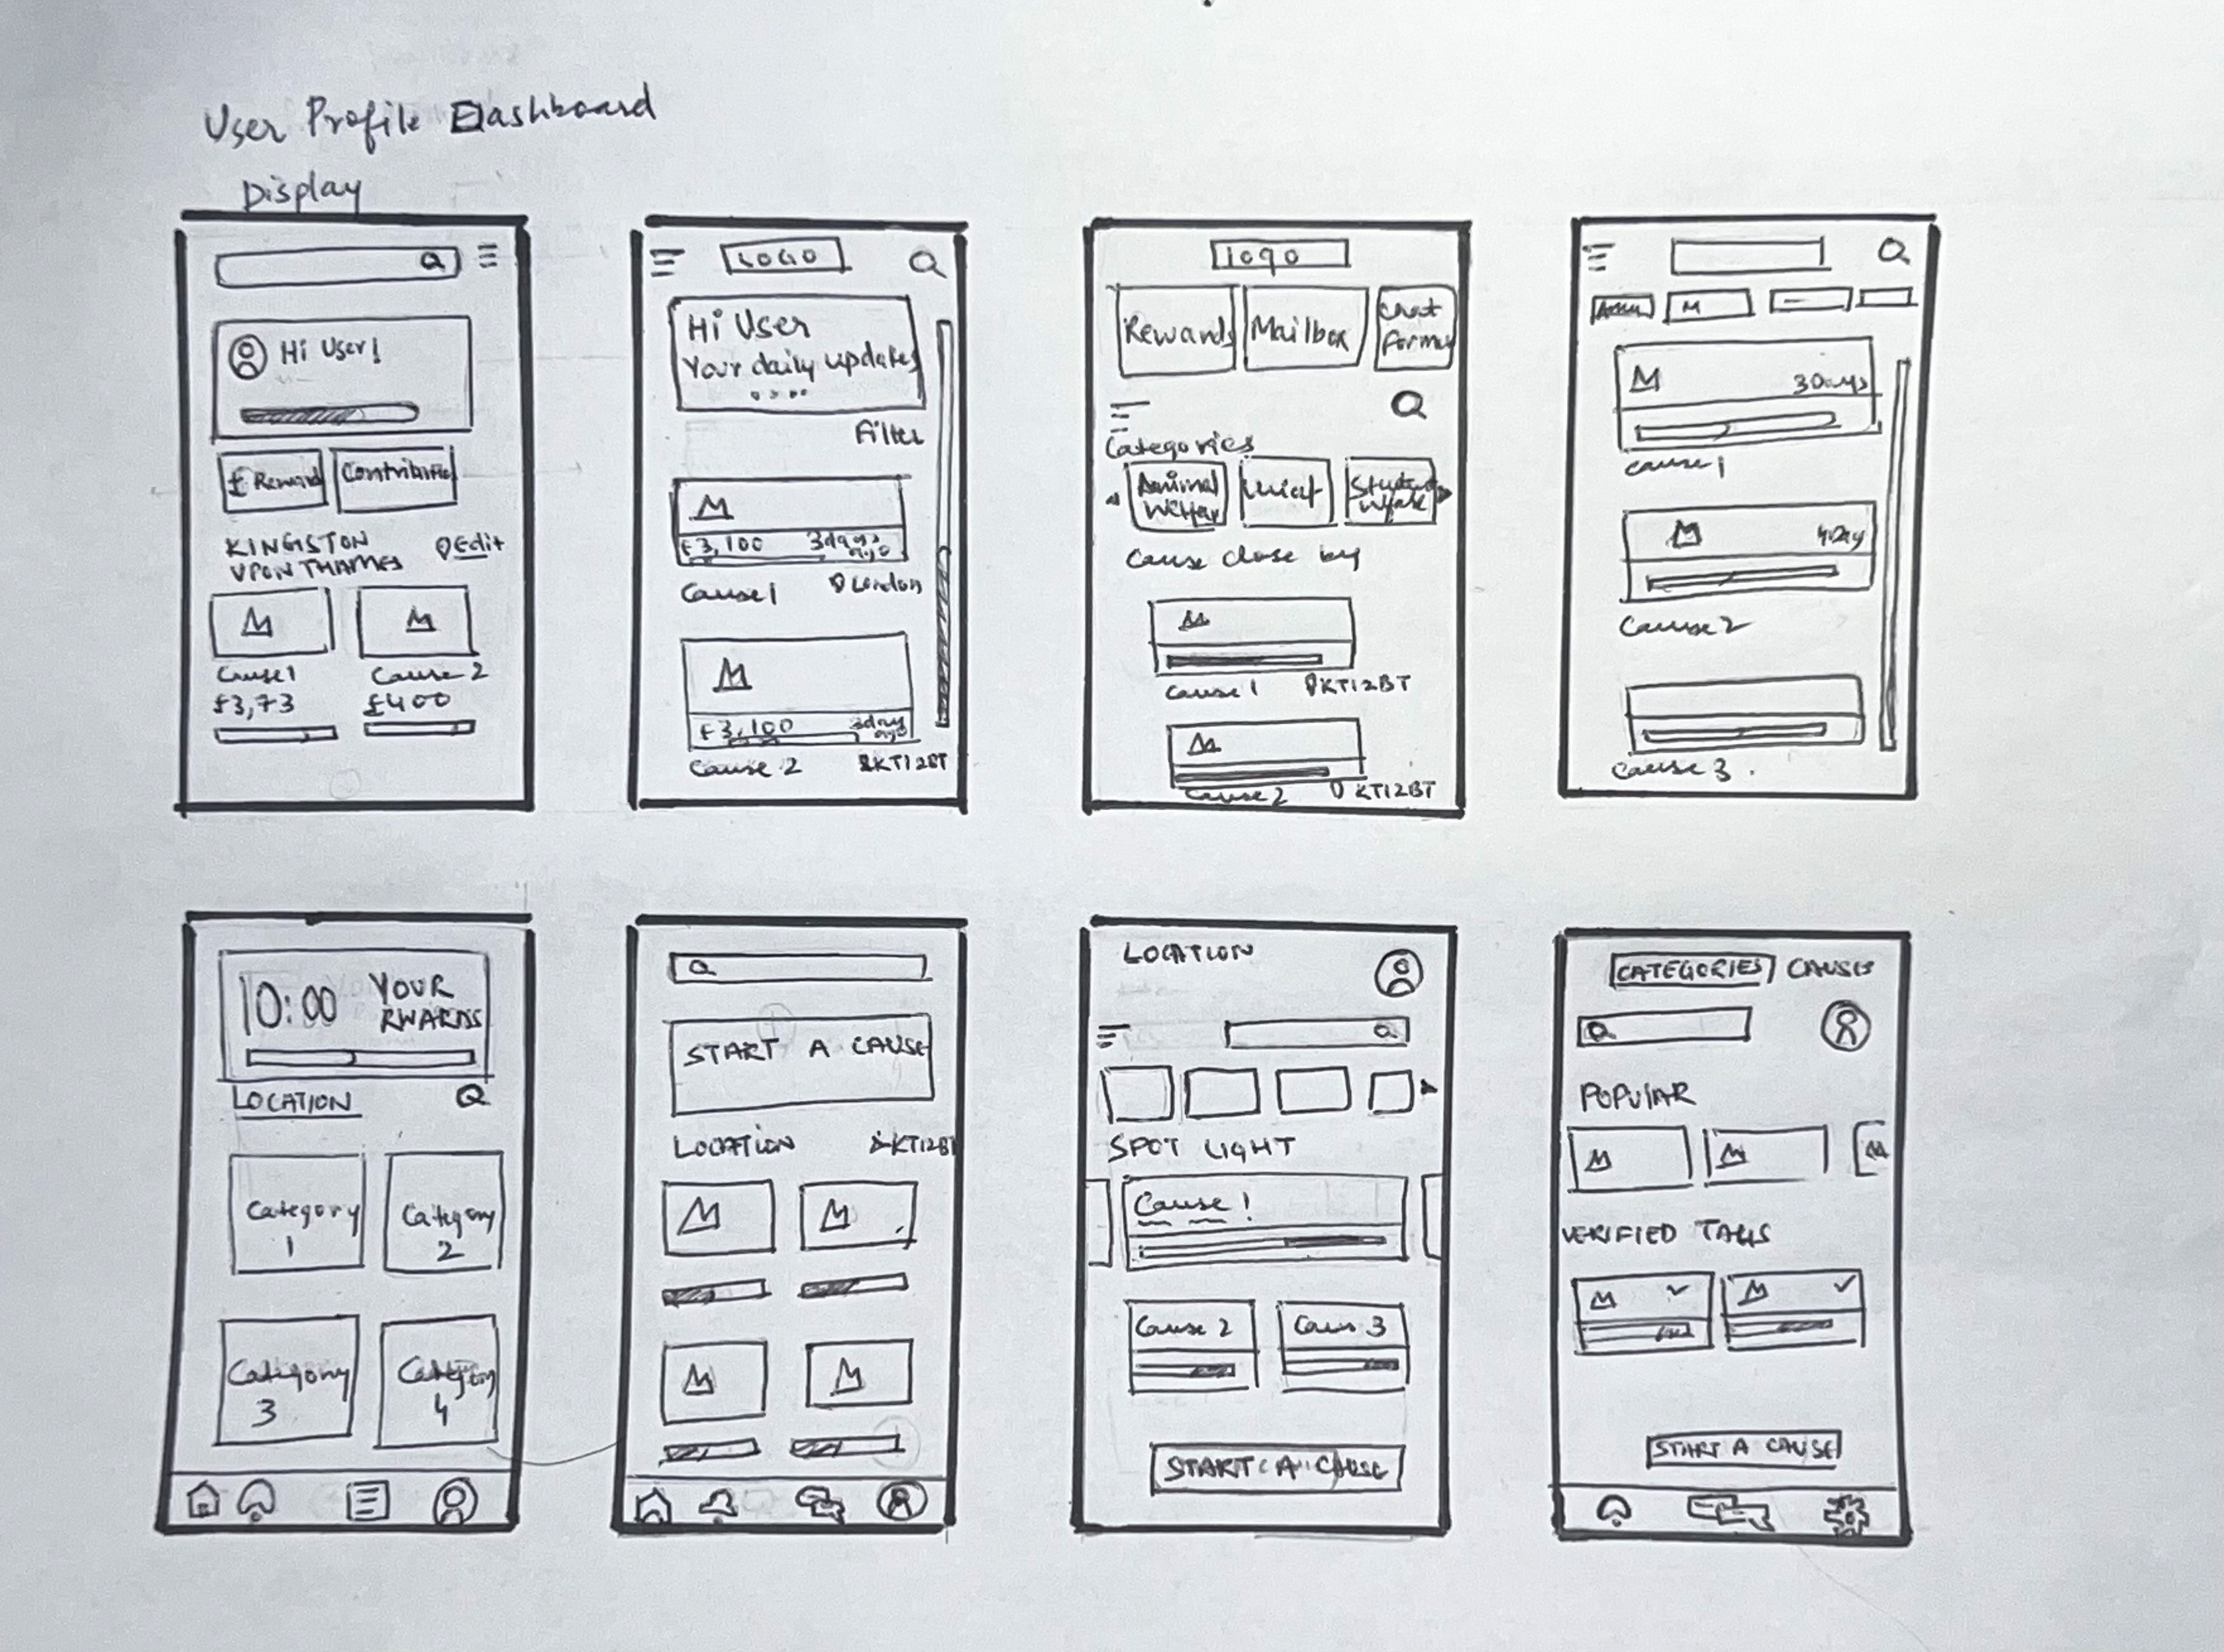 User Profile Dashboard
Display
Hi User!
£ Reward
KINGSTON
UPON THAMES
Edit
Cause 1
Cause 2
£3,73
£400
LOGO
Hi User
Your daily updates
Filter
£3,100
3days
ago
Cause 1
London
£3,100
3day
ago
Cause 2
KT12BT
logo
Rewards
Mailbox
Chat
Categories
Animal
Cause close by
Cause 1
KT12BT
Cause 2
KT12BT
3Days
Cause 1
4Day
Cause 2
Cause 3
10:00
YOUR
RWARDS
LOCATION
Category
1
Category
2
Category
3
Category
4
START A CAUSE
LOCATION
KT12BT
LOCATION
SPOT LIGHT
Cause !
Cause 2
Caus 3
START A CAUSE
CATEGORIES
CAUSES
POPULAR
VERIFIED TAGS
START A CAUSE